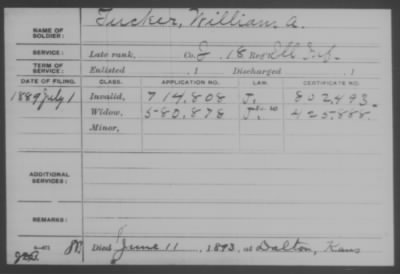 NAME OF SOLDIER: Tucker, William A.
SERVICE: Late rank, Co. J, 18 Reg Ill Inf.
TERM OF SERVICE: Enlisted , 1 Discharged , 1
DATE OF FILING. CLASS. APPLICATION NO. LAW. CERTIFICATE NO.
1889 July 1 Invalid, 714.808 J. 802.493.
Widow, 580.878 425.888.
Minor,
ADDITIONAL SERVICES:
REMARKS:
Died June 11, 1893, at Dalton, Kans